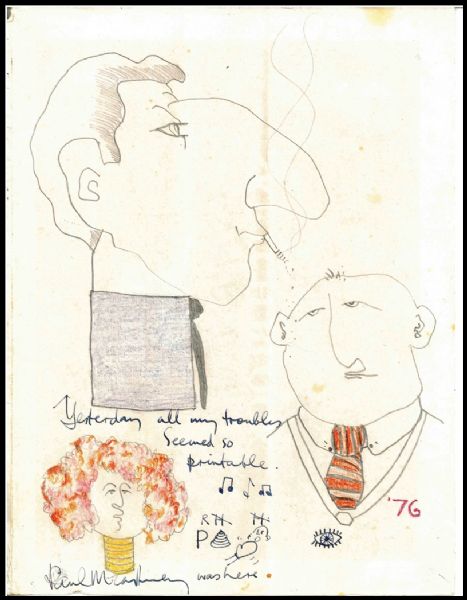 Yesterday all my troubles
Seemed so
printable.
'76
P
Paul McCartney was here.